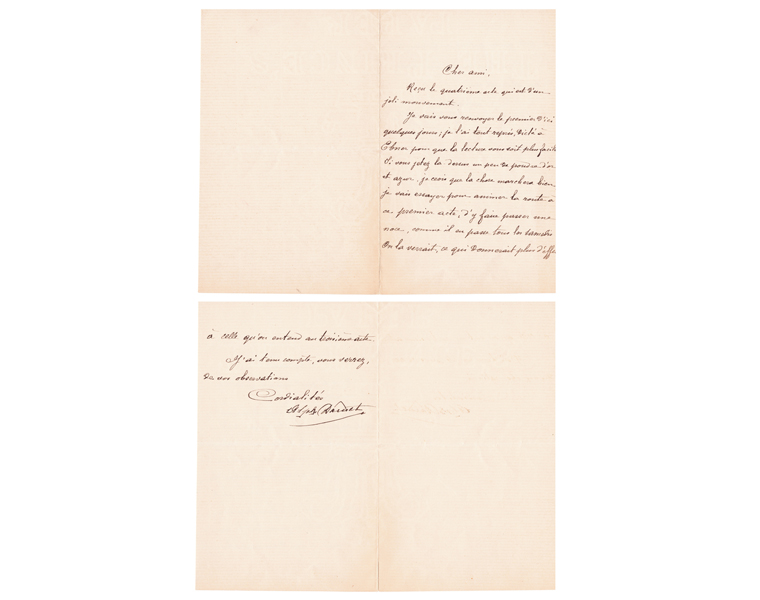 Cher ami,
Reçu le quatrieme acte qui est d'un
joli mouvement.
Je vais vous renvoyer le premier d'ici
quelques jours; je l'ai tout repris, dicté à
Ebner pour que la lecture vous soit plus facile
Si vous jetez la dessus un peu de poudre d'or
et azur, je crois que la chose marchera bien.
je vais essayer pour animer la route à
ce premier acte, d'y faire passer une
noce, comme il en passe tous les samedis
On la verrait, ce qui donnerait plus d'effet
à celle qu'on entend au troisieme acte.
J'ai tenu compte, vous verrez,
de vos observations
Cordialités
Alph. Daudet